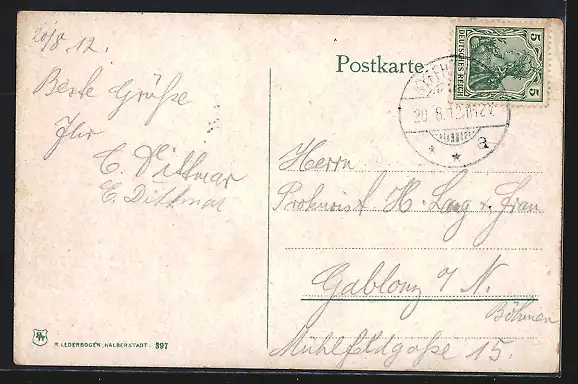 20/8 12.
Beste Grüße
Ihr
C. Dittmar
E. Dittmar
Postkarte
DEUTSCHES REICH
5
5
20.8.12
a
Herrn
Prokurist H. Lang u. Frau
Gablonz a/N.
Böhmen
Mühlfeldgaße 15.
R. LEDERBOGEN, HALBERSTADT. 397